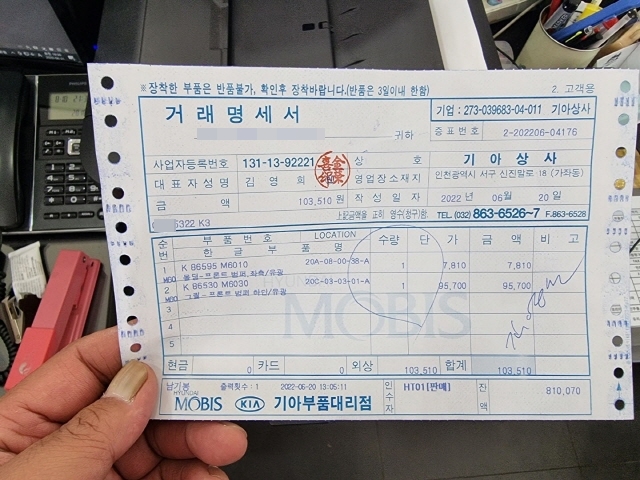 ※장착한 부품은 반품불가, 확인후 장착바랍니다.(반품은 3일이내 한함)
2. 고객용
거래명세서
기업 : 273-039683-04-011 기아상사
귀하
증표번호 2-202206-04176
사업자등록번호 131-13-92221 상호 기아상사
대표자성명 김영희 영업장소재지 인천광역시 서구 신진말로 18 (가좌동)
금액 103,510 원 작성일자 2022 년 06 월 20 일
上記금액을 正히 영수(청구)함. TEL.(032) 863-6526~7 F.863-6528
6922 K3
순번 부품번호 LOCATION 수량 단가 금액 비고
한글부품명
1 K 86595 M6010 20A-08-00-38-A 1 7,810 7,810
MBO 몰딩-프론트 범퍼,좌측/유광
2 K 86530 M6030 20C-03-03-01-A 1 95,700 95,700
MBO 그릴-프론트 범퍼,하단/유광
3
4
5
MOBIS
현금 0 카드 0 외상 103,510 합계 103,510
남기봉 출력횟수 : 1 2022-06-20 13:05:11 인수자 HT01[판매] 잔액 810,070
HYUNDAI MOBIS KIA 기아부품대리점